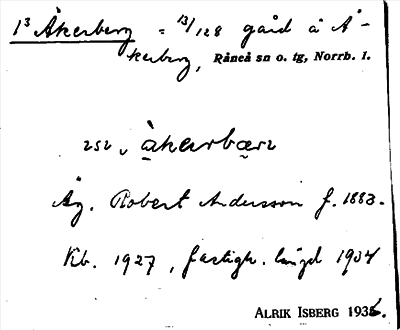 1³ Åkerberg = 13/128 gård å Å-
kerberg, Råneå sn o. tg, Norrb. l.
Äg. Robert Andersson f. 1883.
Kb. 1927, fastigh. längd 1934
ALRIK ISBERG 1936.